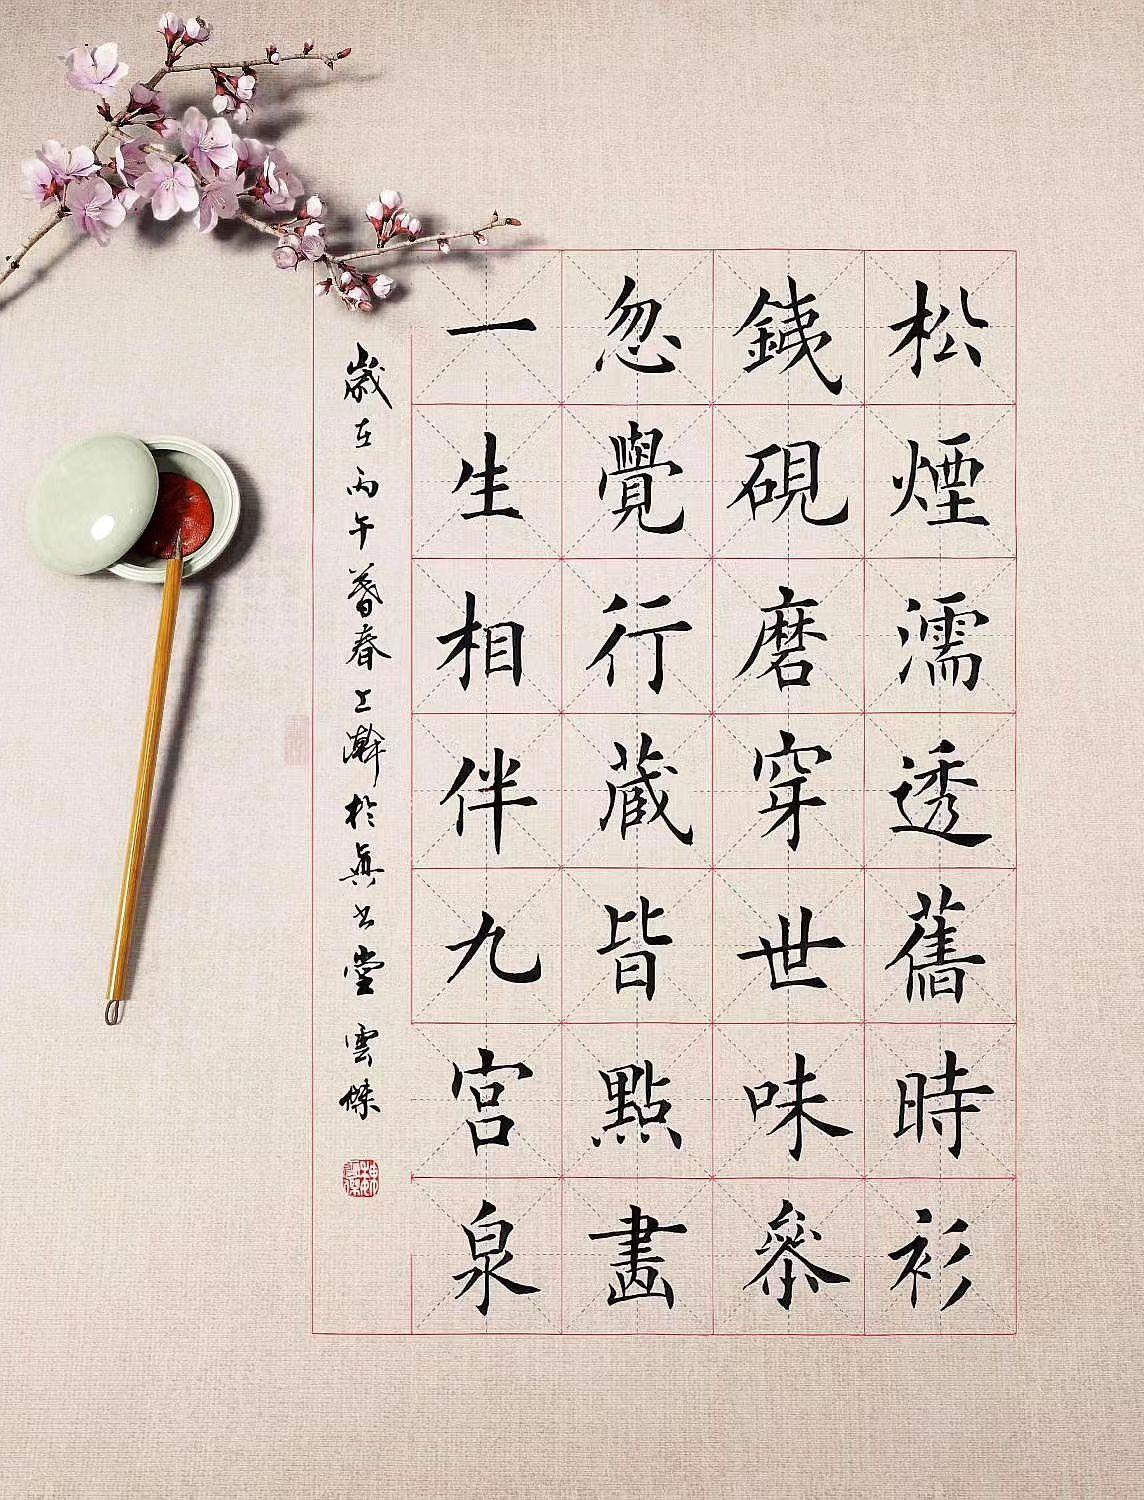 松煙濡透舊時衫
銕硯磨穿世味叅
忽覺行蔵皆點畫
一生相伴九宮泉
歲在丙午暮春上澣於眞书堂 雲傑